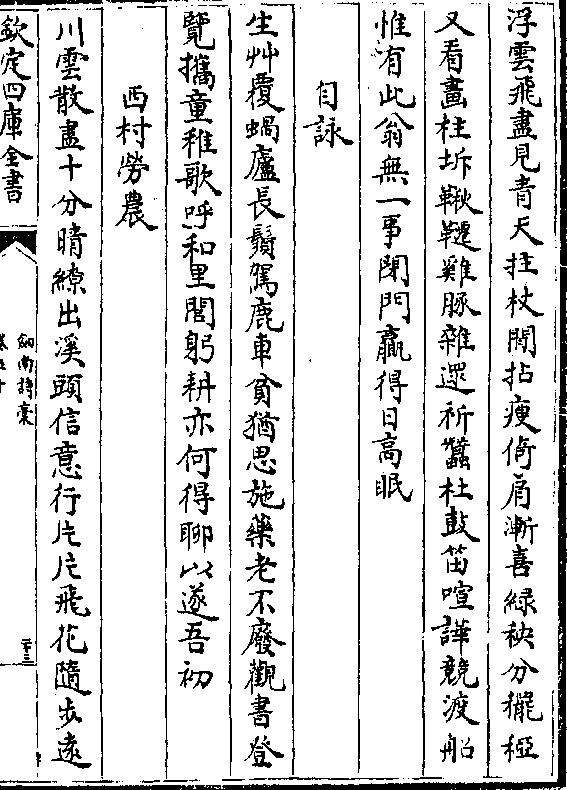 浮雲飛盡見青天拄杖閒拈瘦倚肩漸喜綠秧分䆉稏
又看畫柱坼鞦韆雞豚雜遝祈蠶社鼓笛喧譁競渡船
惟有此翁無一事閉門贏得日高眠
自詠
生艸覆蝸廬長鬚駕鹿車貧猶思施藥老不廢觀書登
覽攜童稚歌呼和里閭躬耕亦何得聊以遂吾初
西村勞農
川雲散盡十分晴繚出溪頭信意行片片飛花隨步遠
欽定四庫全書
劍南詩稾
卷五十
二十三